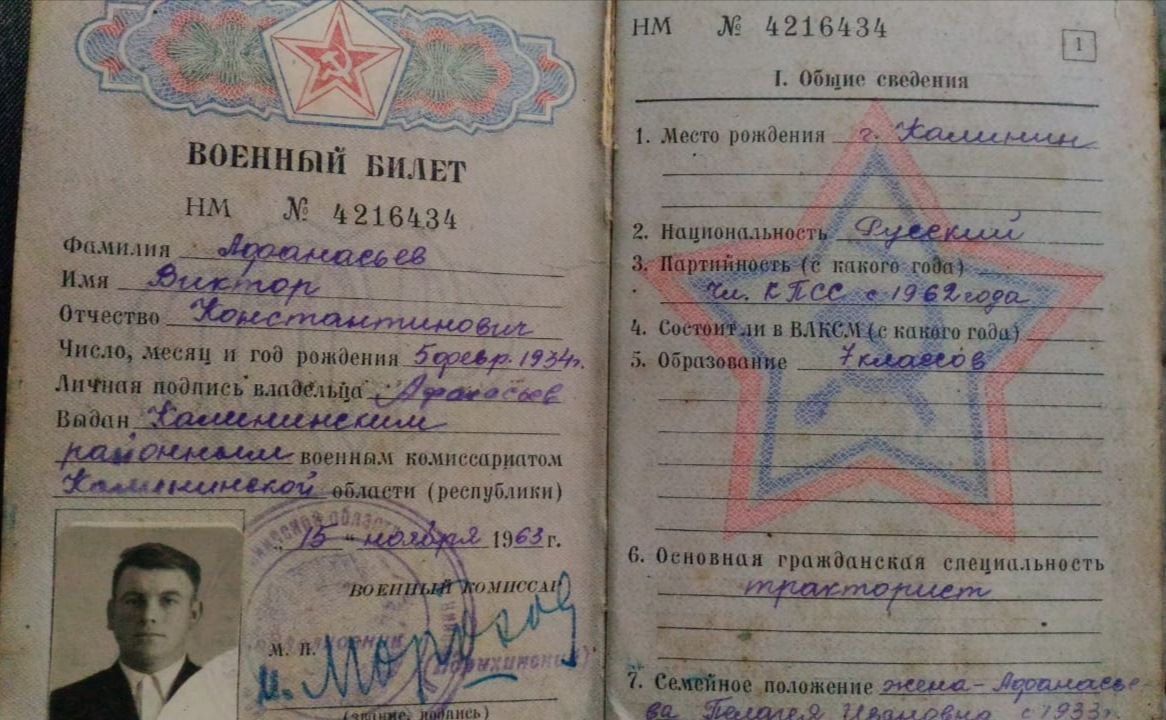 ВОЕННЫЙ БИЛЕТ
НМ № 4216434
Фамилия Афанасьев
Имя Виктор
Отчество Константинович
Число, месяц и год рождения 5 февр. 1934г.
Личная подпись владельца Афанасьев
Выдан Калининским
районным военным комиссариатом
Калининской области (республики)
„15" ноября 1963 г.
ВОЕННЫЙ КОМИССАР
М. П.
(звание, подпись)
НМ № 4216434
1
I. Общие сведения
1. Место рождения г. Калинин
2. Национальность Русский
3. Партийность (с какого года)
Чл. КПСС с 1962 года
4. Состоит ли в ВЛКСМ (с какого года)
5. Образование 7 классов
6. Основная гражданская специальность
тракторист
7. Семейное положение жена - Афанасье-
ва Пелагея Ивановна с 1933г.